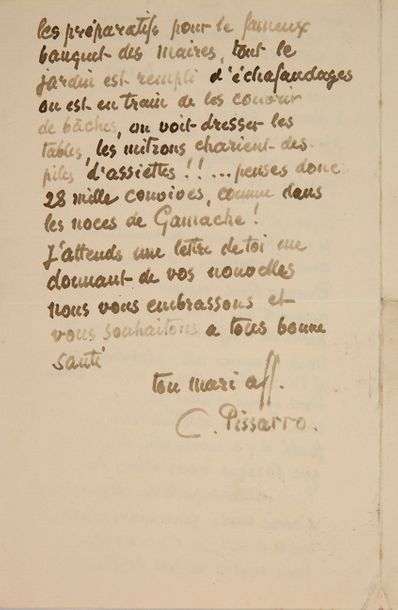 les préparatifs pour le fameux
banquet des maires, tout le
jardin est rempli d'échafaudages
on est en train de les couvrir
de bâches, on voit dresser les
tables, les mitrons charient des
piles d'assiettes !! ... penses donc
28 mille convives, comme dans
les noces de Gamache !
J'attends une lettre de toi me
donnant de vos nouvelles
nous vous embrassons et
vous souhaitons a tous bonne
santé
ton mari aff.
C. Pissarro.